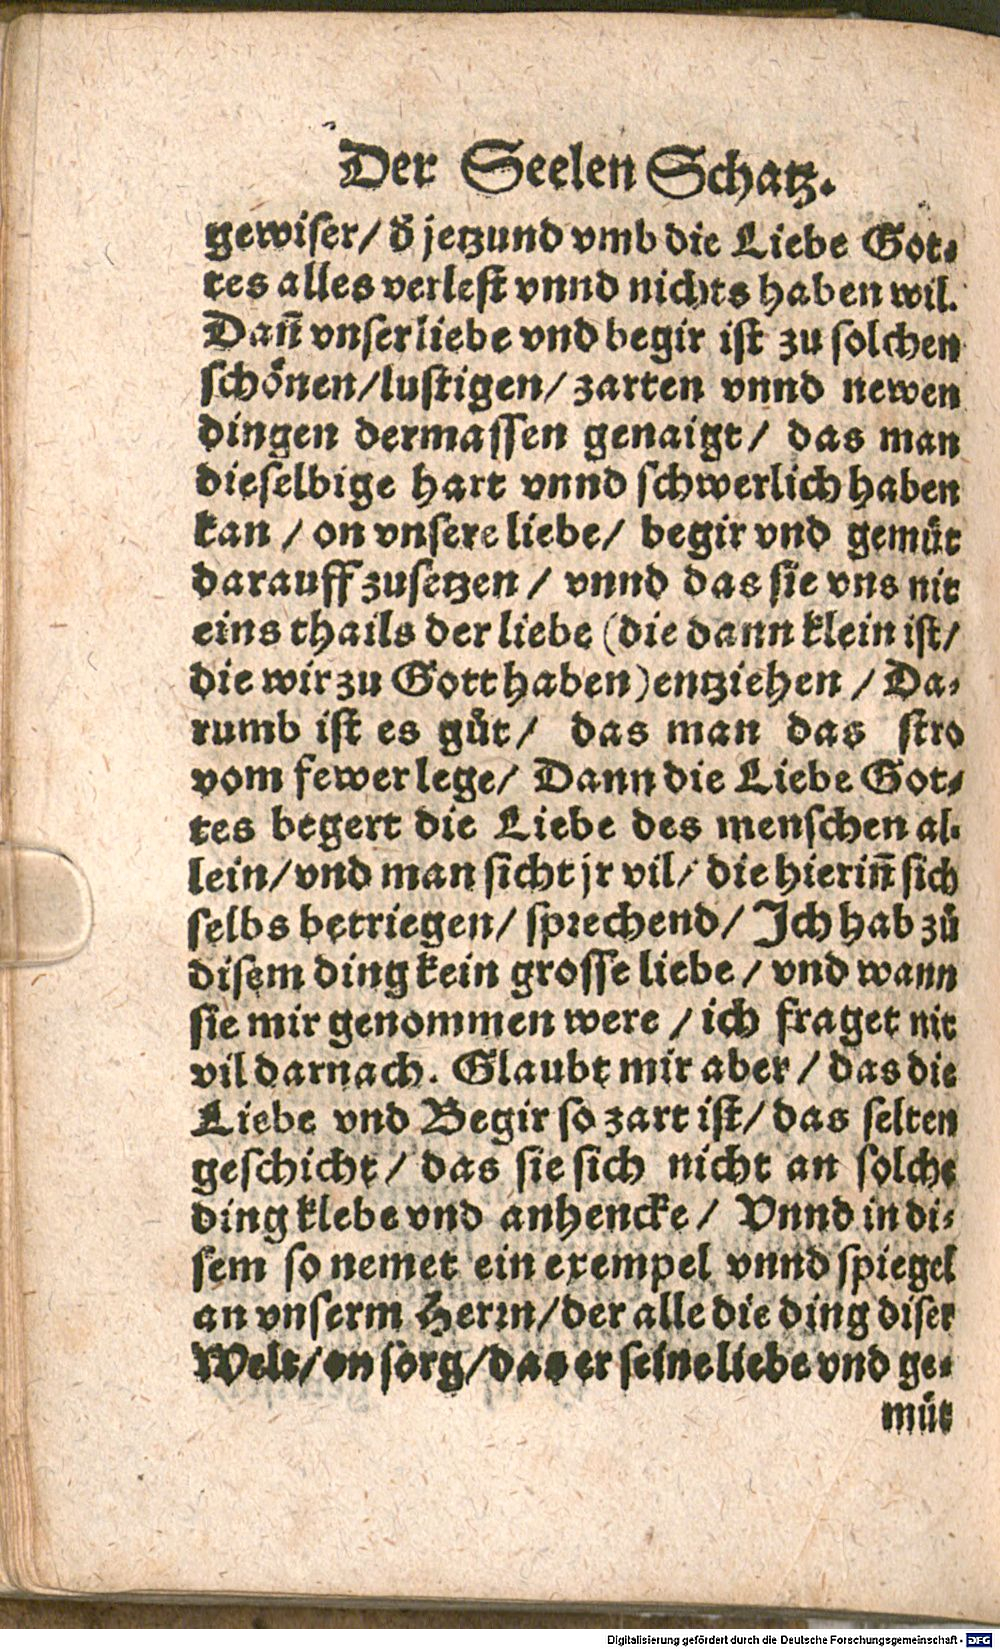 Der Seelen Schatz.
gewiser/ d̄ jetzund vmb die Liebe Got⸗
tes alles verlest vnnd nichts haben wil.
Dañ vnser liebe vnd begir ist zu solchen
schoͤnen/lustigen/ zarten vnnd newen
dingen dermassen genaigt/ das man
dieselbige hart vnnd schwerlich haben
kan / on vnsere liebe/ begir vnd gemuͤt
darauff zusetzen / vnnd das sie vns nit
eins thails der liebe (die dann klein ist/
die wir zu Gott haben) entziehen / Da⸗
rumb ist es guͦt/ das man das stro
vom fewer lege/ Dann die Liebe Got⸗
tes begert die Liebe des menschen al⸗
lein/vnd man sicht jr vil/ die hieriñ sich
selbs betriegen/ sprechend/ Ich hab zuͦ
disem ding kein grosse liebe / vnd wann
sie mir genommen were / ich fraget nit
vil darnach. Glaubt mir aber / das die
Liebe vnd Begir so zart ist/ das selten
geschicht/ das sie sich nicht an solche
ding klebe vnd anhencke/ Vnnd in di⸗
sem so nemet ein exempel vnnd spiegel
an vnserm Herrn/der alle die ding diser
Welt/ on sorg/das er seine liebe vnd ge⸗
muͤt
Digitalisierung gefördert durch die Deutsche Forschungsgemeinschaft - DFG